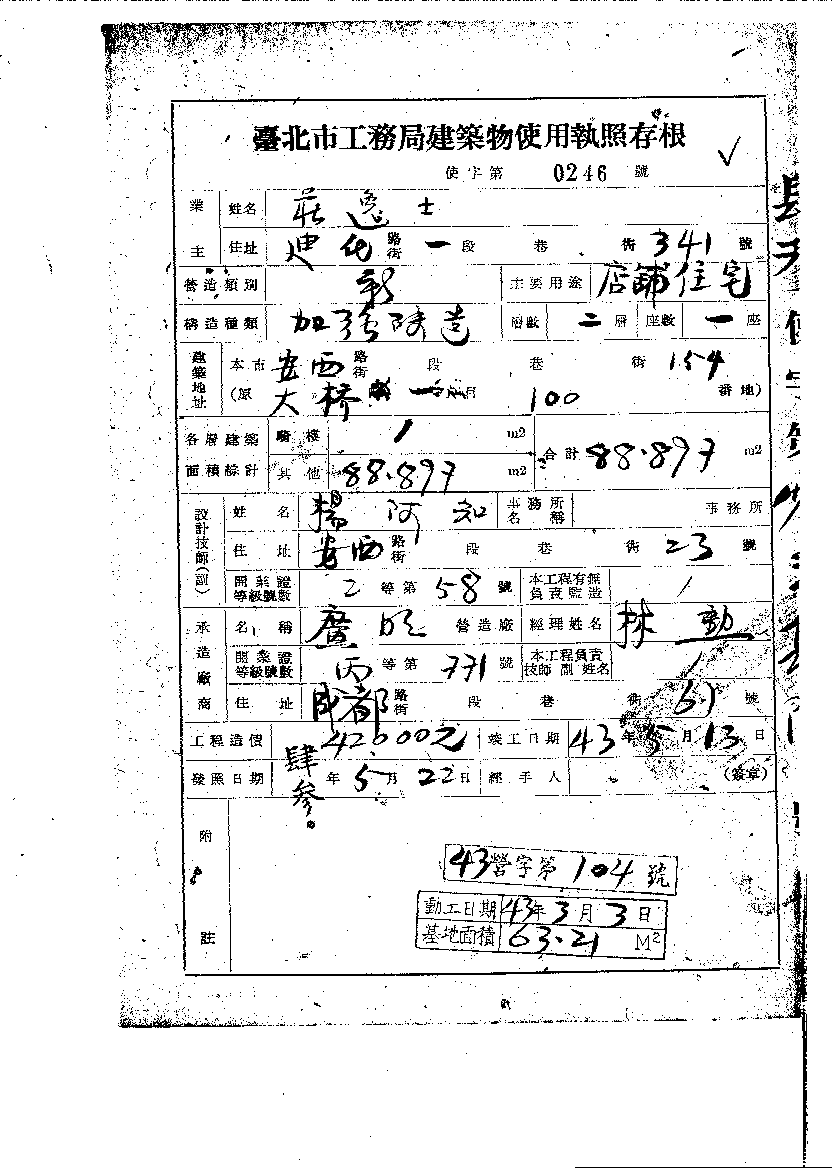 臺北市工務局建築物使用執照存根
使字第 0246 號
業主 姓名 莊逸士
住址 迪化路街一段 巷 衖 341 號
營造類別 新 主要用途 店鋪住宅
構造種類 加強磚造 層數 二層 座數 一座
建築地址 本市 安西路街 段 巷 衖 154
(原 大橋 100 番地)
各層建築面積總計 騎樓 / m2 合計 88.897 m2
其他 88.897 m2
設計技師(副) 姓名 楊阿知 事務所名稱 事務所
住址 安西路街 段 巷 衖 23 號
開業證等級號數 2 等第 58 號 本工程有無負責監造 /
承造廠商 名稱 廣 營造廠 經理姓名 林勳
開業證等級號數 丙等第 771 號 本工程負責技師副姓名 /
住址 成都路街 段 巷 衖 號
工程造價 42000元 竣工日期 43年5月13日
發照日期 肆參年5月22日 經手人 (簽章)
附註
43營字第104號
動工日期 43年3月3日
基地面積 63.21 M²